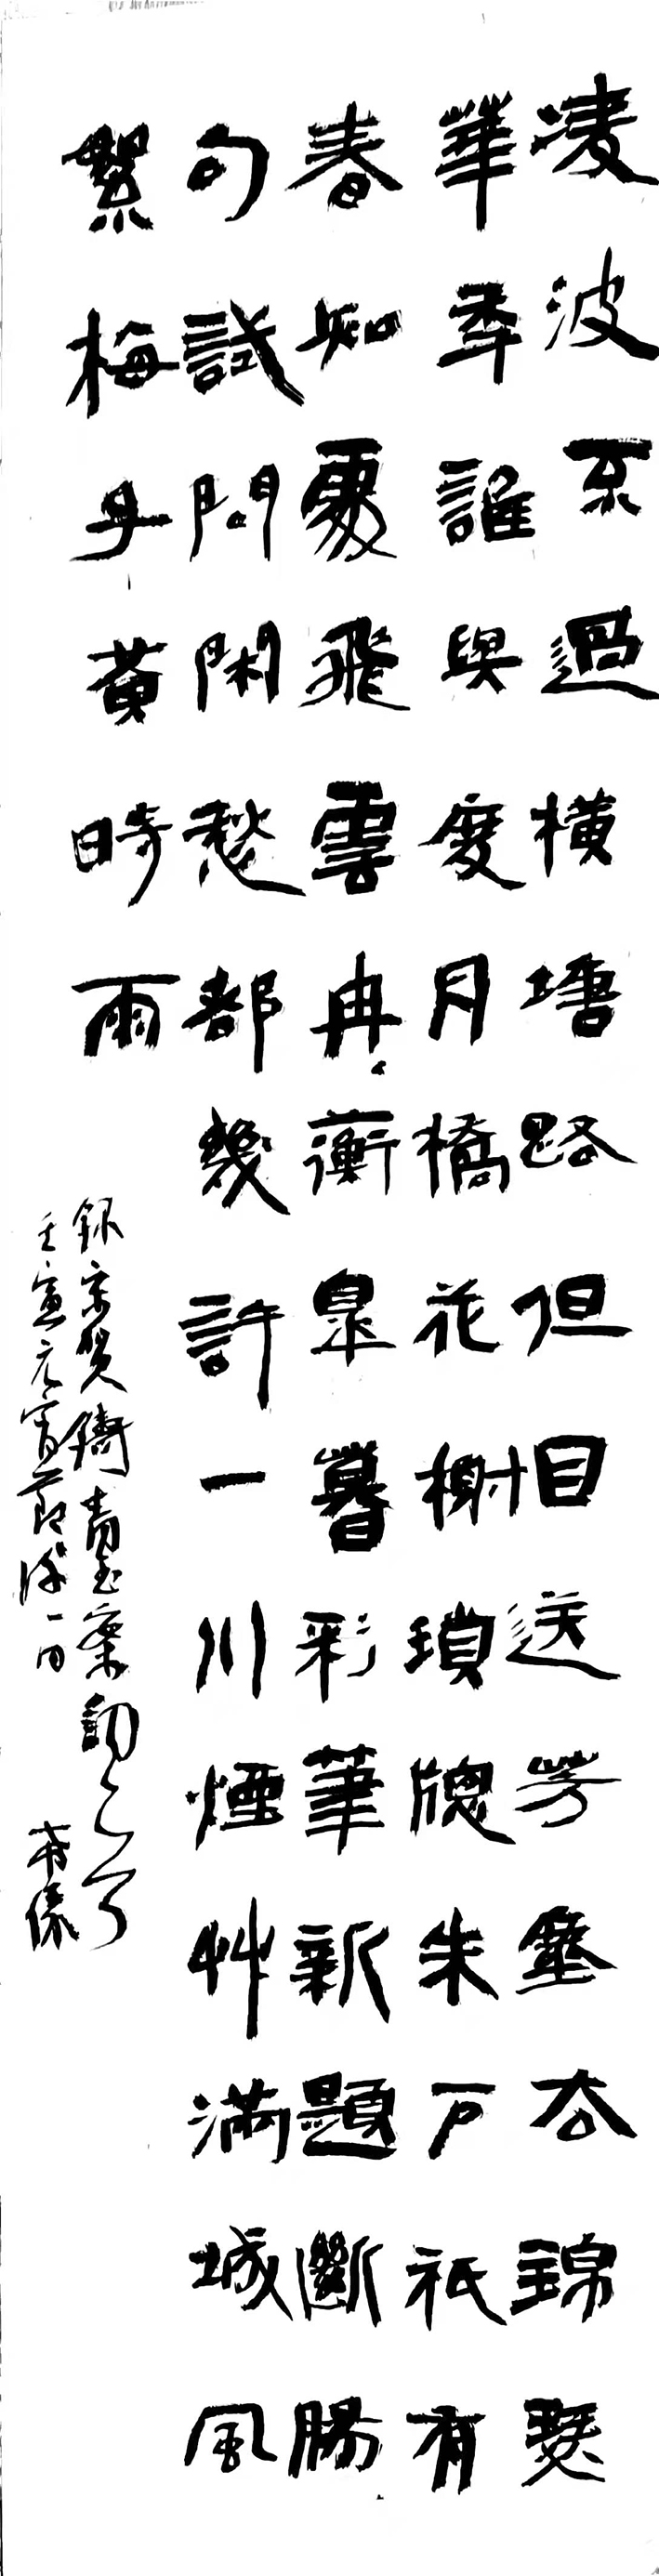 凌波不過橫塘路但目送芳塵去錦瑟
華秊誰與度月橋花榭瑣牕朱戶祇有
春知處飛雲冉〻蘅皋暮彩筆新題斷腸
句試問閑愁都幾許一川煙艸滿城風
絮梅子黃時雨
錄宋賀鑄青玉案詞
壬寅元宵節後一日